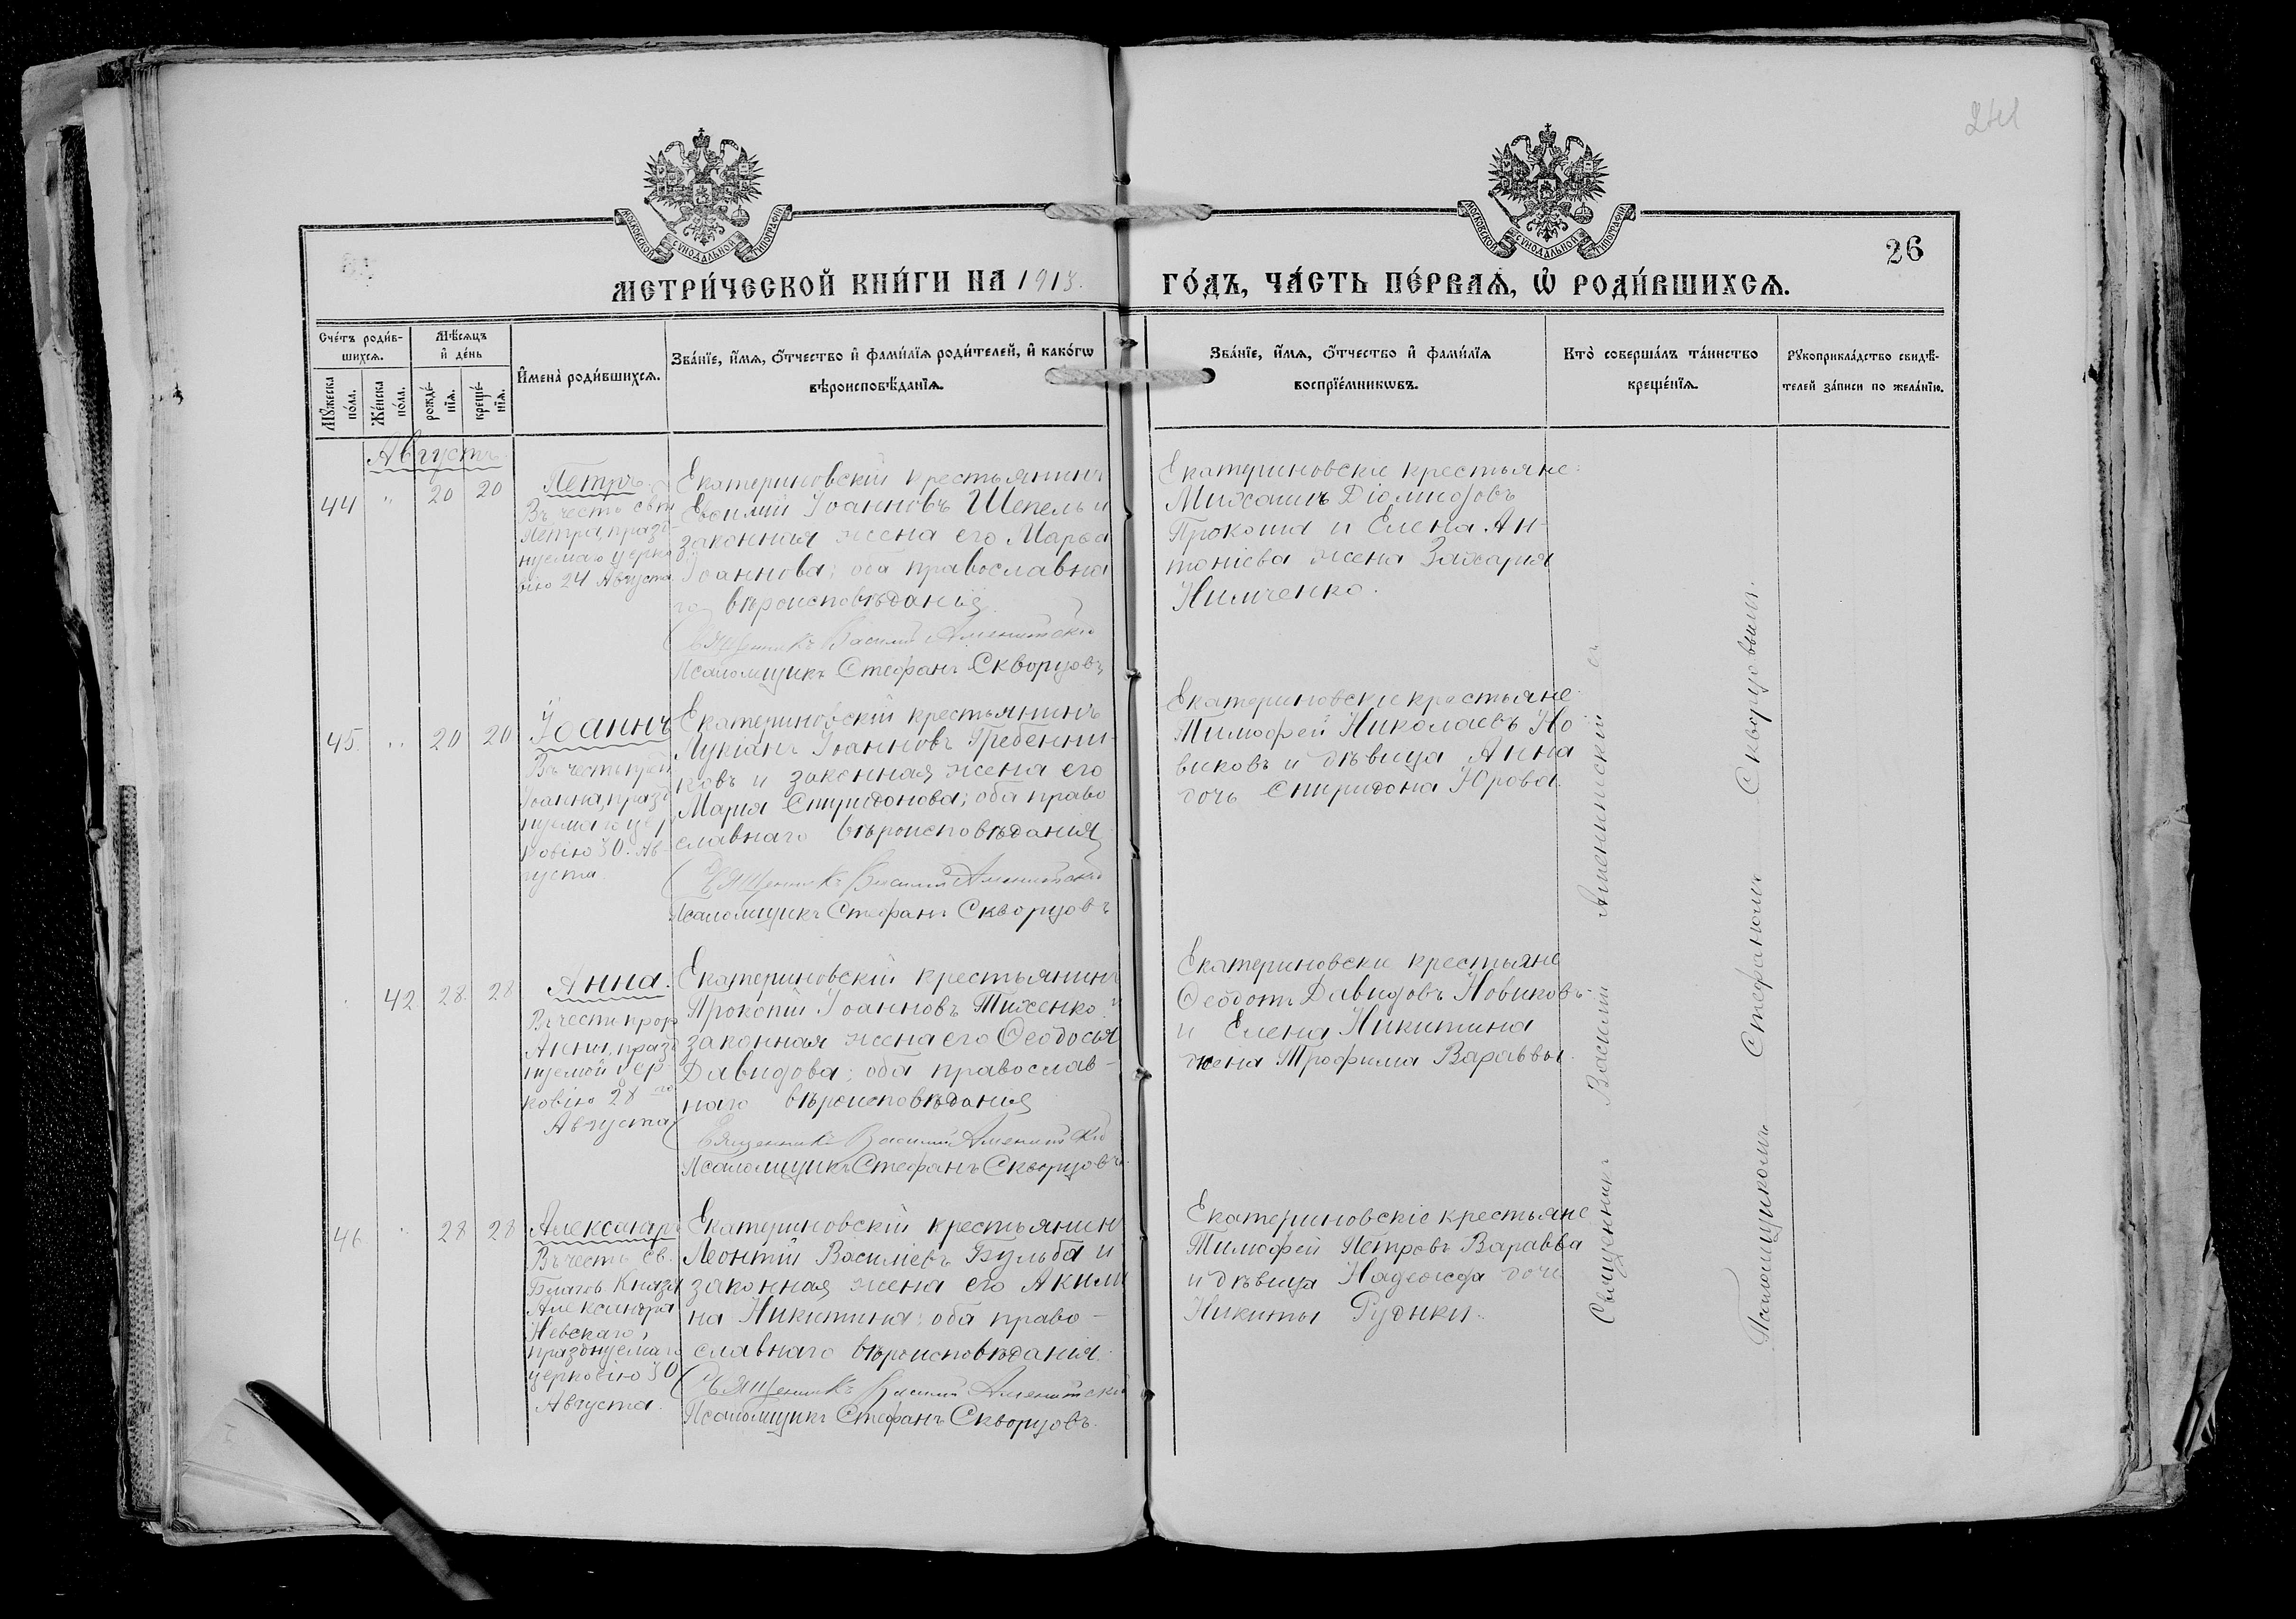 241
МОСКОВСКОЙ СУНОДАЛЬНОЙ ТИПОГРАФІИ
МОСКОВСКОЙ СУНОДАЛЬНОЙ ТИПОГРАФІИ
26
МЕТРИ́ЧЕСКОЙ КНИ́ГИ НА 1913.
ГО́ДЪ, ЧА́СТЬ ПЕ́РВАѦ, Ѽ РОДИ́ВШИХСѦ.
Сче́тъ роди́в-
шихсѧ.
Мꙋ́жеска
по́ла.
Же́нска
по́ла.
Мѣ́сѧцъ
и҆ де́нь
рожде́-
нїѧ.
креще́-
нїѧ.
И҆мена̀ роди́вшихсѧ.
Зва́нїе, и҆́мѧ, ѻ҆́тчество и҆ фами́лїѧ роди́телей, и҆ како́гѡ
вѣроисповѣ́данїѧ.
Зва́нїе, и҆́мѧ, ѻ҆́тчество и҆ фами́лїѧ
воспрїе́мникѡвъ.
Кто̀ соверша́лъ та́инство
креще́нїѧ.
Рꙋкоприкла́дство свидѣ́-
телей за́писи по жела́нїю.
Августъ
44 " 20 20
Петръ.
Въ честь свт
Петра, празд-
нуемаго церко
вію 24 Августа.
Екатериновскій крестьянинъ
Евѳимій Іоанновъ Шепель и
законная жена его Марѳа
Іоаннова; оба православна
го вѣроисповѣданія
Священникъ Василій Аменитскій
Псаломщикъ Стефанъ Скворцовъ
Екатериновскіе крестьяне:
Михаилъ Діомидовъ
Прокоша и Елена Ан-
тоніева жена Захарія
Нимченко.
45. " 20 20
Іоаннъ
Въ честь преп
Іоанна, празд
нуемаго цер
ковію 30. Ав-
густа.
Екатериновскій крестьянинъ
Лукіанъ Іоанновъ Гребенни-
ковъ и законная жена его
Марія Спиридонова; оба право
славнаго вѣроисповѣданія
Священникъ Василій Аменитскій
Псаломщикъ Стефанъ Скворцовъ
Екатериновскіе крестьяне:
Тимофей Николаевъ Но-
виковъ и дѣвица Анна
дочь Спиридона Юрова.
42. 28. 28
Анна.
Въ честь прор
Анны, празд
нуемой цер
ковію 28го
Августа
Екатериновскій крестьянинъ
Прокопій Іоанновъ Тищенко и
законная жена его Ѳеодосія
Давидова; оба православ-
наго вѣроисповѣданія
Священникъ Василій Аменитскій
Псаломщикъ Стефанъ Скворцовъ.
Екатериновскіе крестьяне
Ѳеодотъ Давидовъ Новиковъ-
и Елена Никитина
жена Трофима Вараввы.
46. " 28 28
Александръ
Въ честь св.
Благов Князя
Александра
Невскаго,
празднуемаго
церковію 30
Августа.
Екатериновскій крестьянинъ
Леонтій Василіевъ Бульба и
законная жена его Акили
на Никитина; оба право-
славнаго вѣроисповѣданія.
Священникъ Василій Аменитскій
Псаломщикъ Стефанъ Скворцовъ.
Екатериновскіе крестьяне
Тимофей Петровъ Варавва
и дѣвица Надежда дочь
Никиты Рудики.
Священникъ Василій Аменитскій съ
Псаломщикомъ Стефаномъ Скворцовымъ.